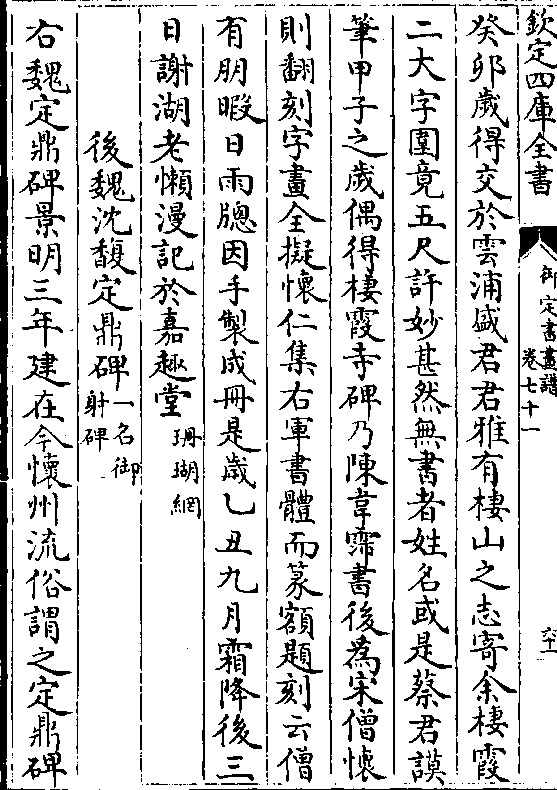 欽定四庫全書
御定書畫譜
卷七十一
癸卯歲得交於雲浦盛君君雅有棲山之志寄余棲霞
二大字圍竟五尺許妙甚然無書者姓名或是蔡君謨
筆甲子之歲偶得棲霞寺碑乃陳韋霈書後為宋僧懷
則翻刻字畫全擬懷仁集右軍書體而篆額題刻云僧
有朋暇日雨牕因手製成冊是歲乙丑九月霜降後三
日謝湖老懶漫記於嘉趣堂
珊瑚網
後魏沈馥定鼎碑
一名御
射碑
右魏定鼎碑景明三年建在今懷州流俗謂之定鼎碑